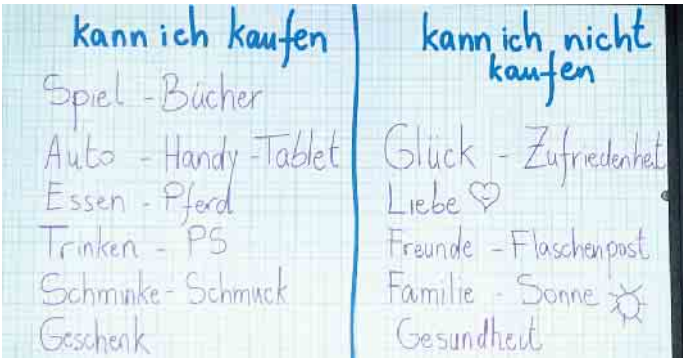 kann ich kaufen
Spiel - Bücher
Auto - Handy - Tablet
Essen - Pferd
Trinken - PS
Schminke - Schmuck
Geschenk
kann ich nicht
kaufen
Glück - Zufriedenheit
Liebe
Freunde - Flaschenpost
Familie - Sonne
Gesundheit